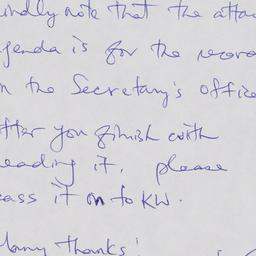 indly note that the attac
genda is for the recor
n the Secretary's office
fter you finish with
eading it, please
ass it on to KW.
Many thanks!